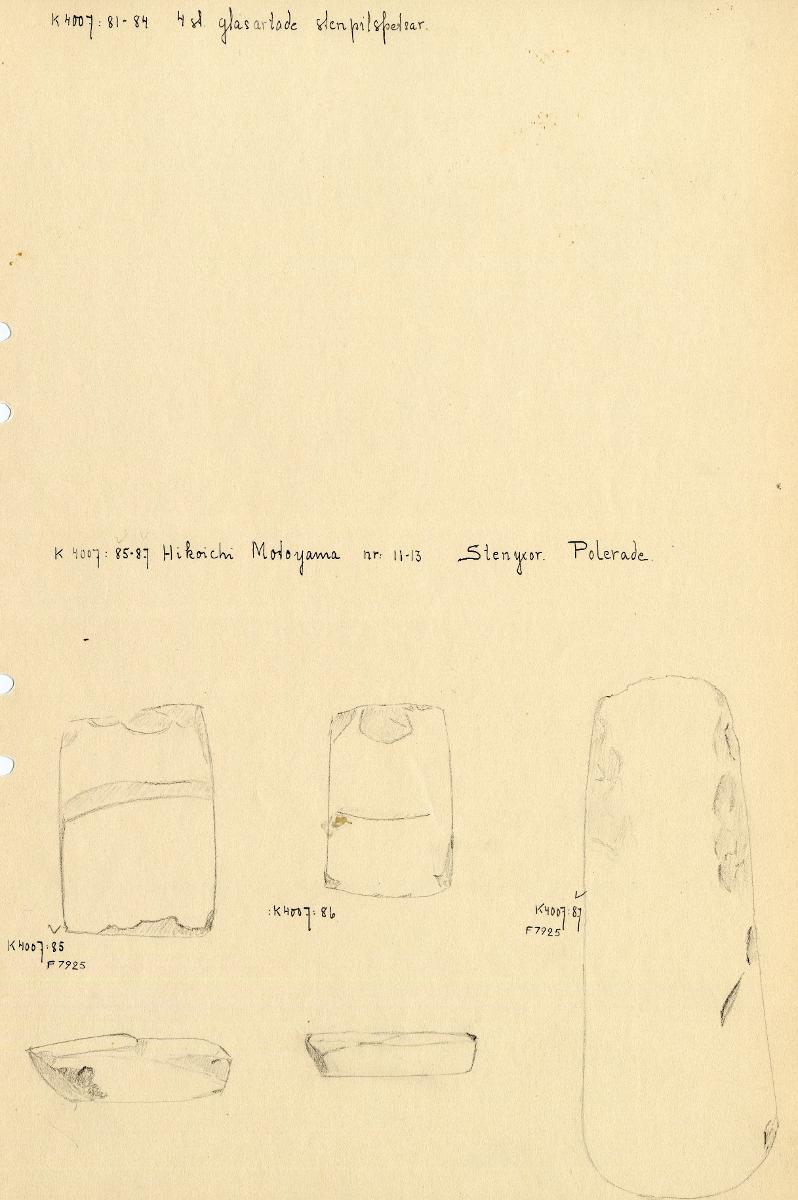 K 4007: 81-84 4 st. glasartade stenpilspetsar.
K 4007: 85-87 Hikoichi Motoyama nr: 11-13 Stenyxor. Polerade.
K4007:85
F 7925
:K4007:86
K4007:87
F7925